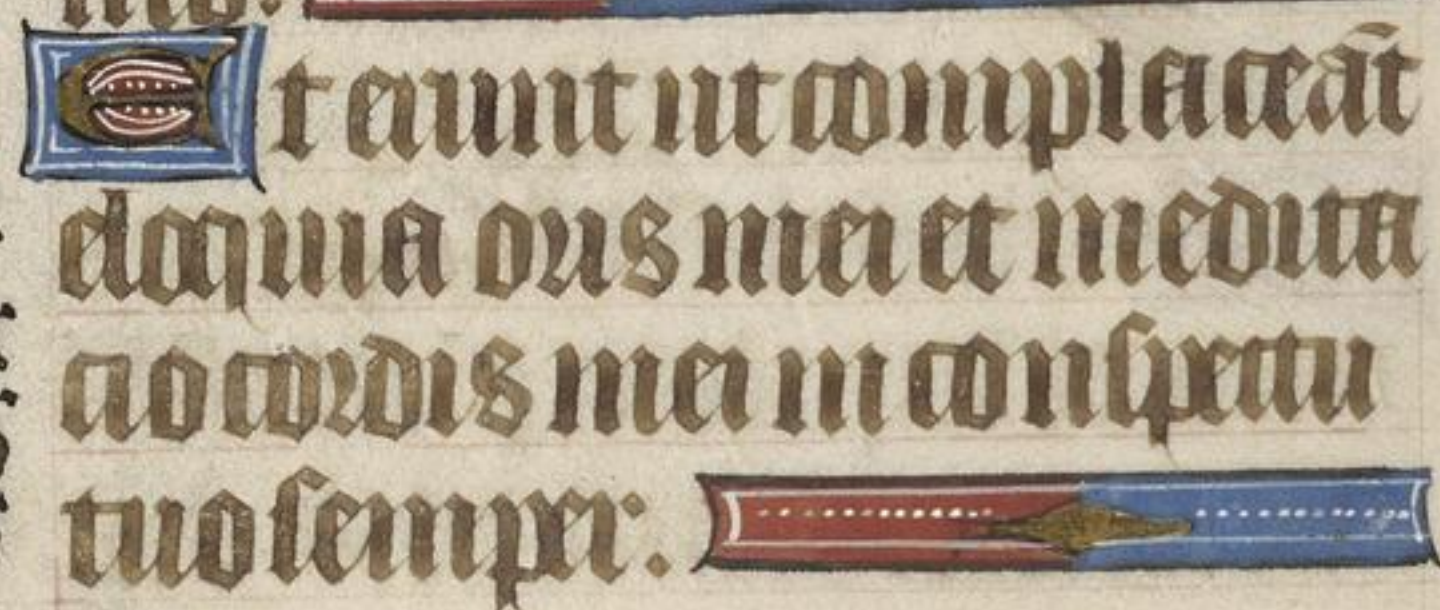 Et erunt ut complaceāt
eloquia oris mei et medita
cio cordis mei in conspectu
tuo semper.